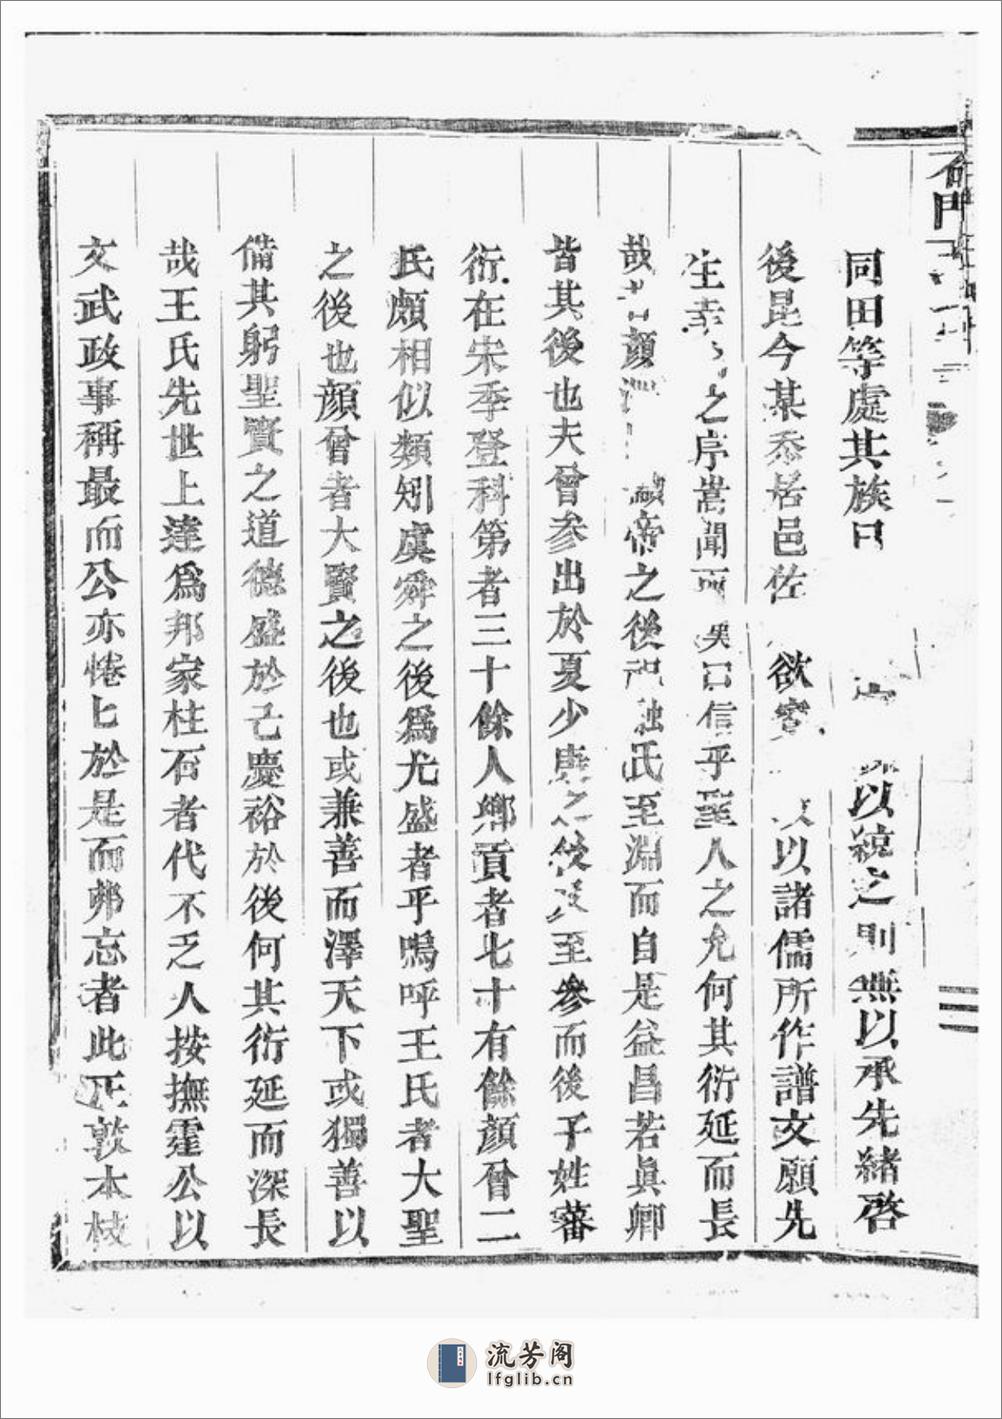 同田等處其族曰以統之則無以承先緒啓
後昆今某忝居邑佐欲以諸儒所作譜文願先
生幸之序嵩聞而矣曰信乎聖人之允何其衍延而長
哉顏帝之後祝融氏至淵而自是益昌若眞卿
皆其後也夫曾參出於夏少康之後至參而後子姓蕃
衍在宋季登科第者三十餘人鄉貢者七十有餘顏曾二
氏頗相似類矧虞舜之後爲尤盛者乎嗚呼王氏者大聖
之後也顏曾者大賢之後也或兼善而澤天下或獨善以
備其躬聖賢之道德盛於己慶裕於後何其衍延而深長
哉王氏先世上達爲邦家柱石者代不乏人按撫霆公以
文武政事稱最而公亦惓匕於是而弗忘者此正敦本枝
流芳阁
lfglib.cn